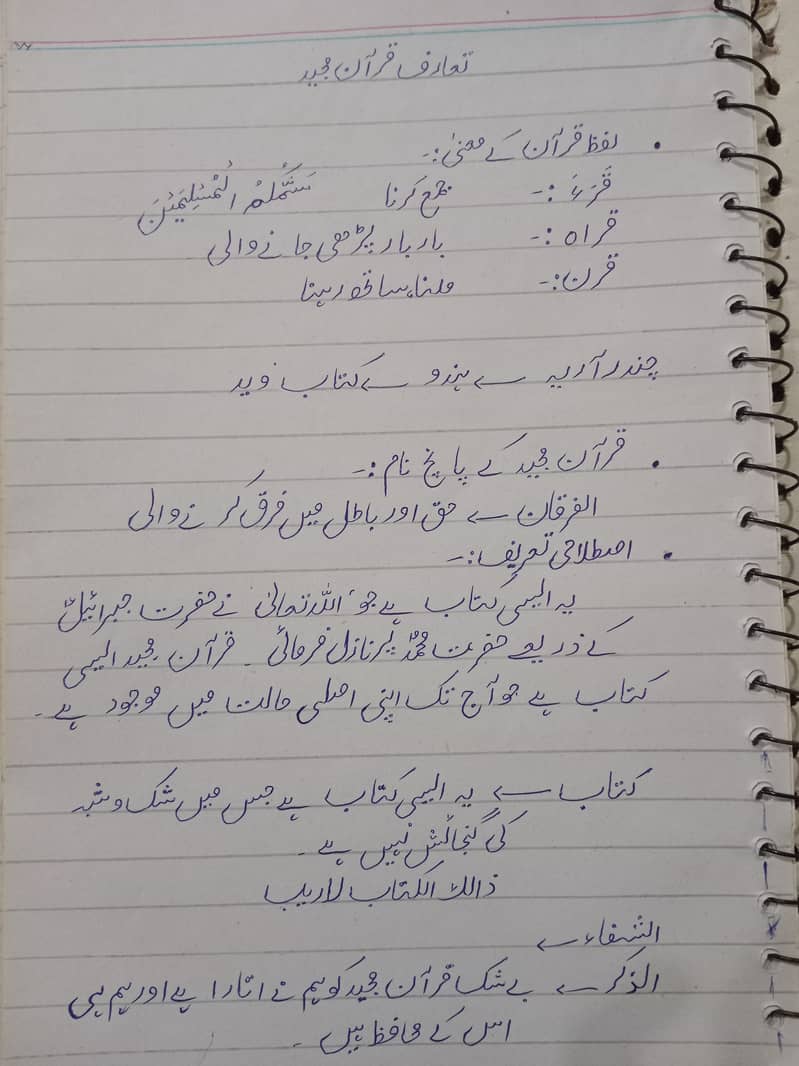 تعارف قرآن مجید
• لفظ قرآن کے معنیٰ:-
قَرَءَ :- جمع کرنا سَمّٰكُمُ الْمُسْلِمِیْنَ
قراہ :- بار بار پڑھی جانے والی
قرن :- ملنا، ساتھ رہنا
چندر آریہ سے ہندو سے کتاب وید
• قرآن مجید کے پانچ نام :-
الفرقان ← حق اور باطل میں فرق کرنے والی
• اصطلاحی تعریف :-
یہ ایسی کتاب ہے جو اللہ تعالیٰ نے حضرت جبرائیلؑ
کے ذریعے حضرت محمدؐ پر نازل فرمائی ۔ قرآن مجید ایسی
کتاب ہے جو آج تک اپنی اصلی حالت میں موجود ہے ۔
کتاب ← یہ ایسی کتاب ہے جس میں شک و شبہ
کی گنجائش نہیں ہے ۔
ذالك الكتاب لاريب
الشفاء ←
الذکر ← بے شک قرآن مجید کو ہم نے اتارا ہے اور ہم ہی
اس کے محافظ ہیں ۔